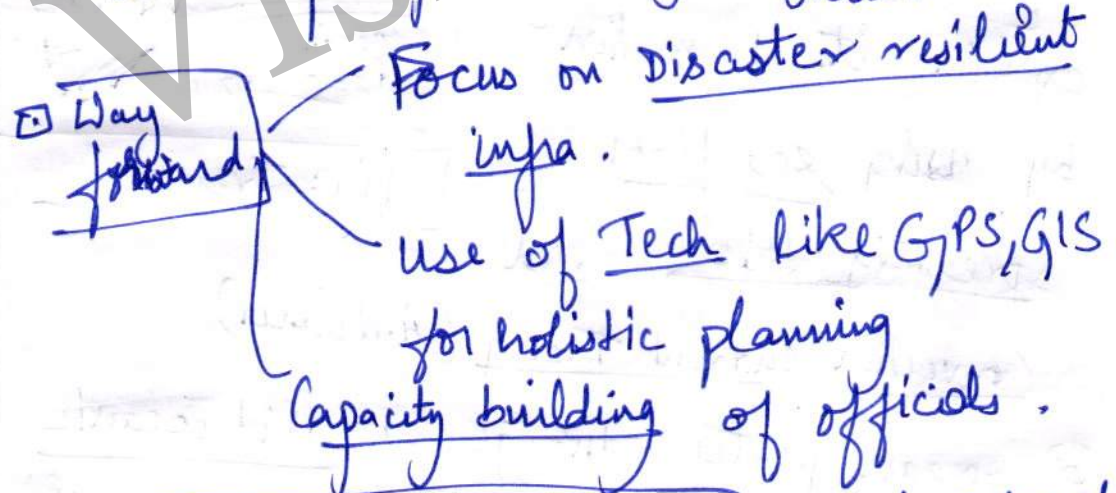 Way forward
Focus on Disaster resilient
infra.
use of Tech like GPS, GIS
for holistic planning
Capacity building of officials.